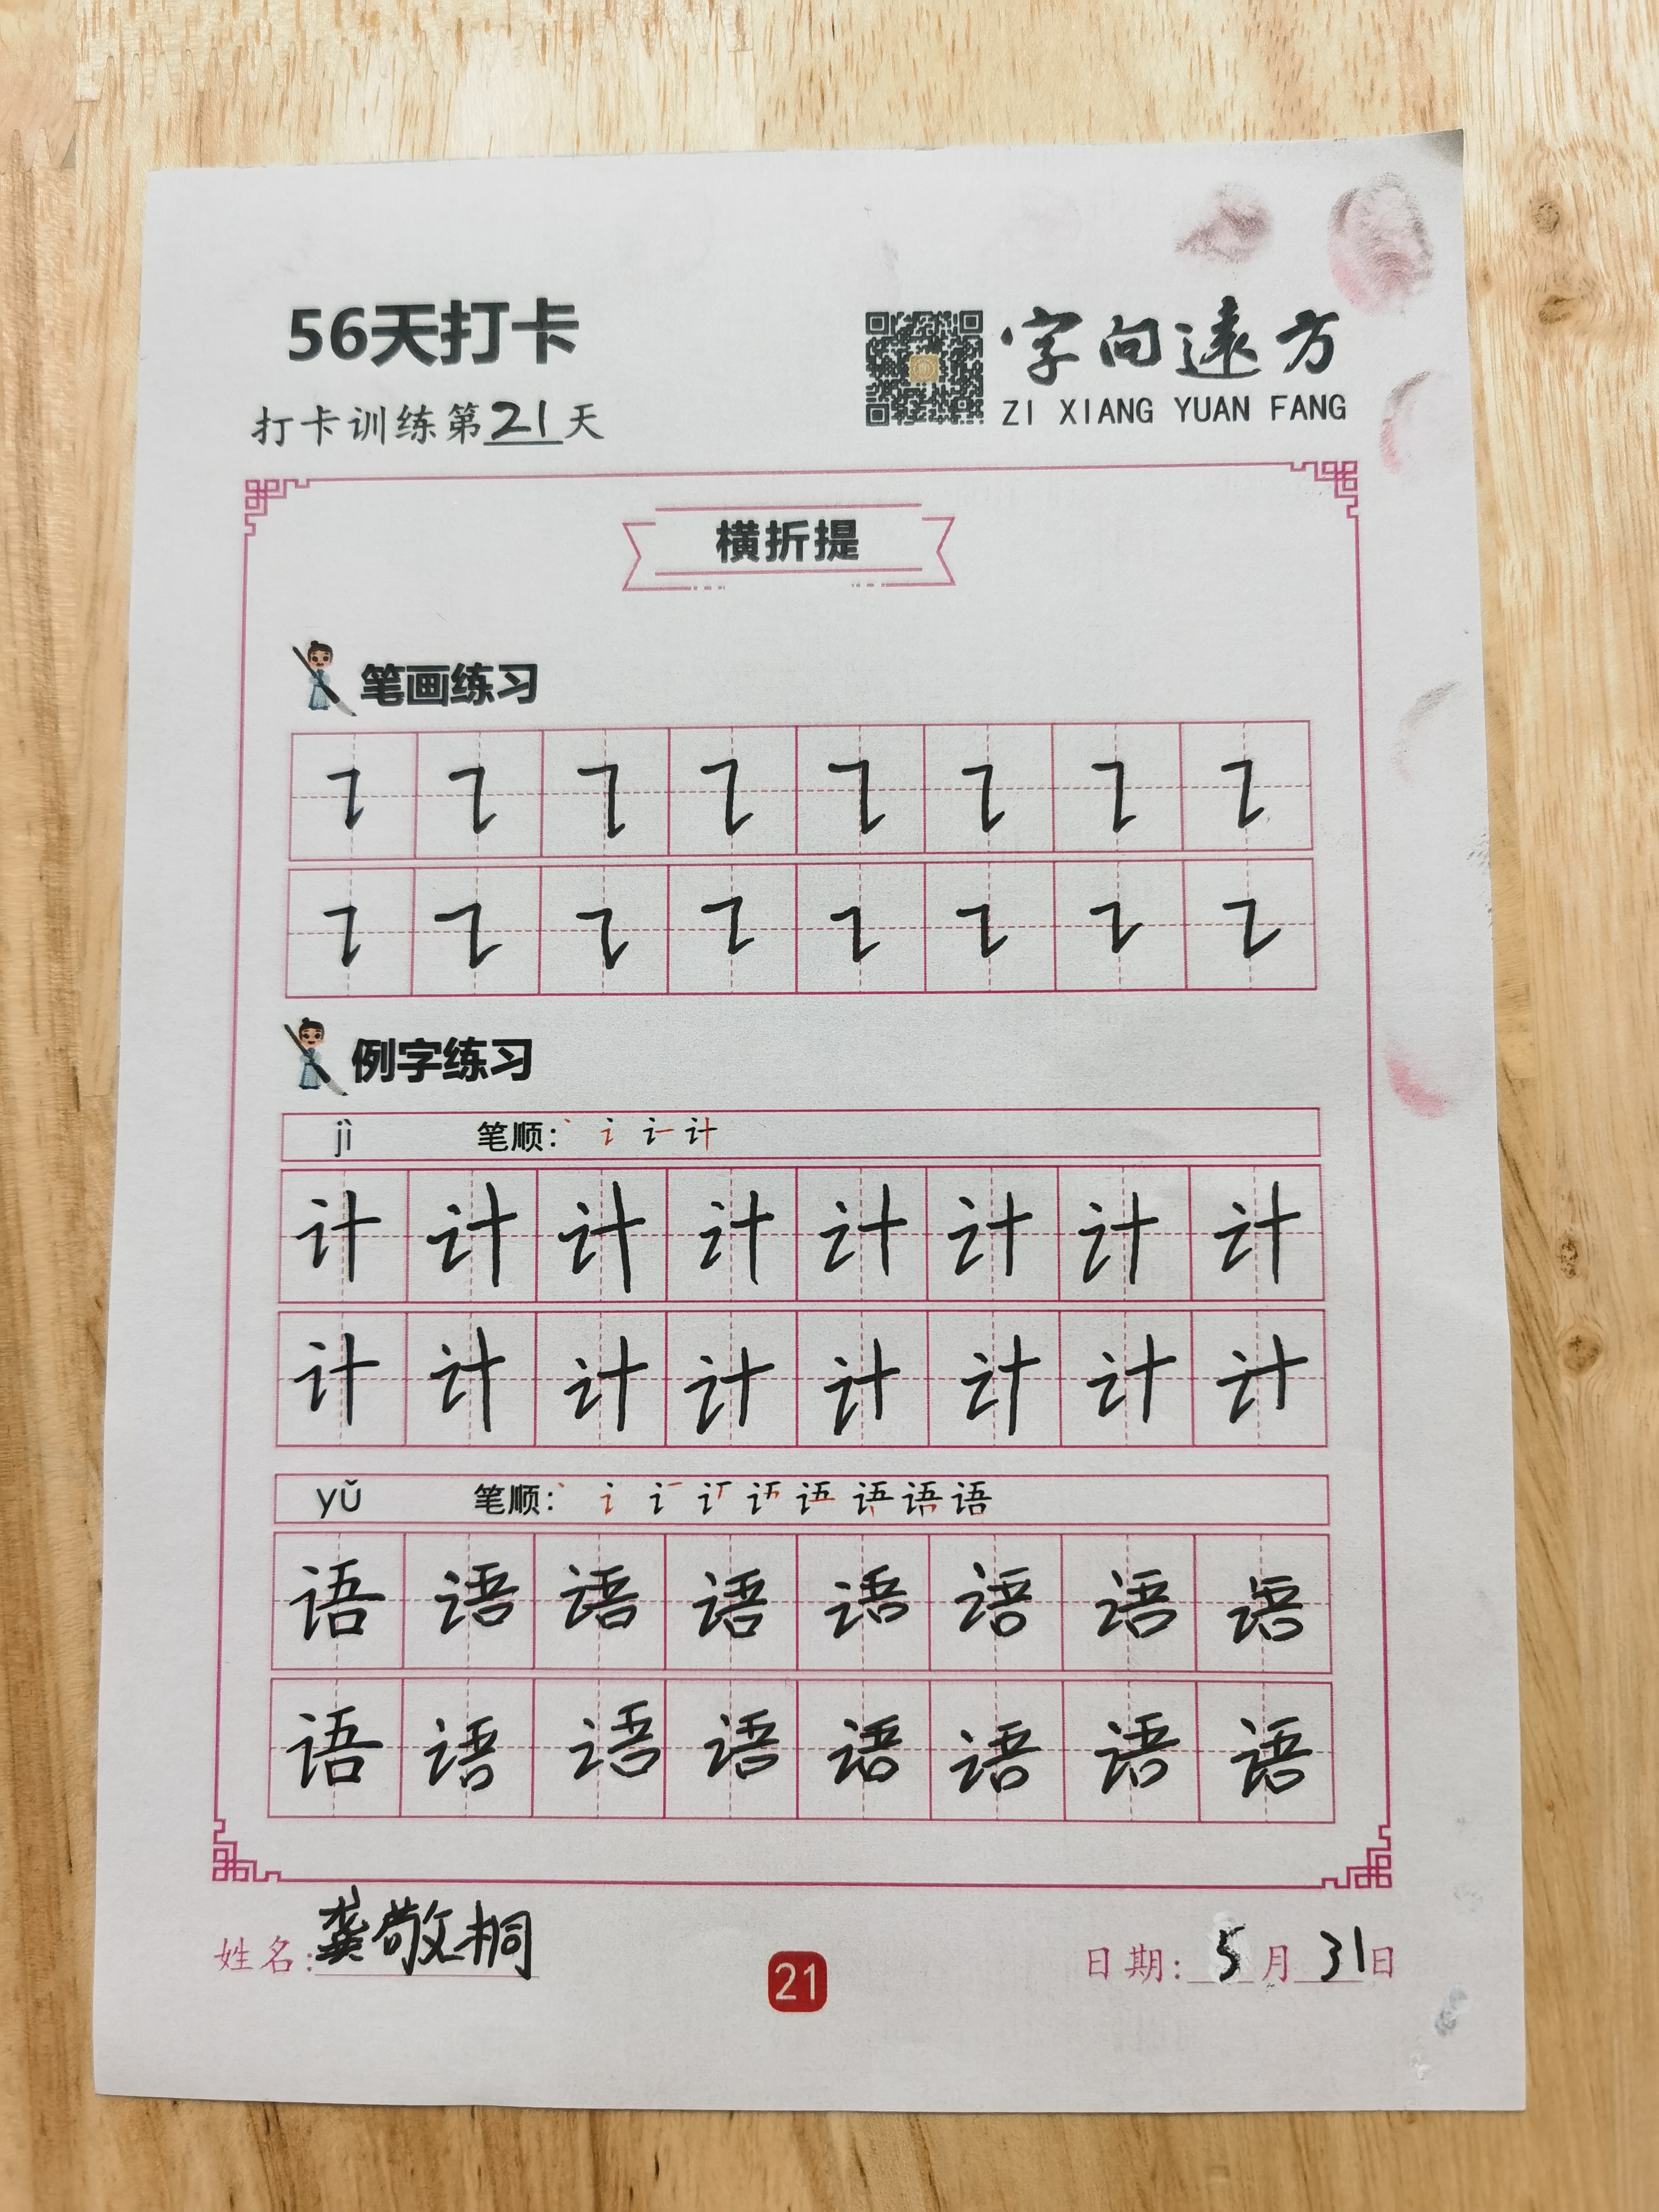 56天打卡
字向遠方
ZI XIANG YUAN FANG
打卡训练第21天
横折提
笔画练习
例字练习
jì 笔顺:
计 计 计 计 计 计 计 计
计 计 计 计 计 计 计 计
yǔ 笔顺: 语
语 语 语 语 语 语 语 语
语 语 语 语 语 语 语 语
姓名:龚敬桐
21
日期:5月31日